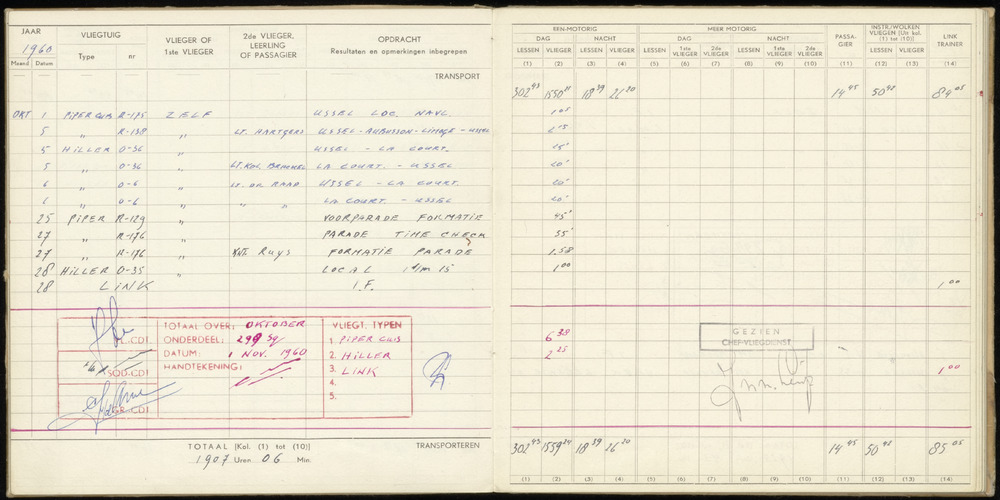 JAAR 1960
VLIEGTUIG
VLIEGER OF 1ste VLIEGER
2de VLIEGER, LEERLING OF PASSAGIER
OPDRACHT
Resultaten en opmerkingen inbegrepen
Maand Datum Type nr
TRANSPORT
OKT 1 PIPER CUB R-125 ZELF USSEL LOC. NAVL.
5 „ R-138 „ LT. HARTGERS USSEL-AUBUSSON-LIMOGE-USSEL
5 HILLER O-36 „ USSEL - LA COURT.
5 „ O-36 „ LT.KOL. LA COURT. - USSEL
6 „ O-6 „ LT. DE RAAD USSEL - LA COURT.
6 „ O-6 „ „ „ LA COURT. - USSEL
25 PIPER R-129 „ VOORPARADE FORMATIE
27 „ R-176 „ PARADE TIME CHECK
27 „ R-176 „ KNT. Ruys FORMATIE PARADE
28 HILLER O-35 „ LOCAL 1 t/m 15
28 LINK I.F.
TOTAAL OVER: OKTOBER
ONDERDEEL: 299 Sq
DATUM: 1 NOV. 1960
HANDTEKENING:
VL.-CDT
SQD-CDT
GR.-CDT
VLIEGT. TYPEN
1. PIPER CUB
2. HILLER
3. LINK
4.
5.
TOTAAL (Kol. (1) tot (10))
TRANSPORTEREN
1907 Uren 06 Min.
EEN-MOTORIG
MEER MOTORIG
PASSA-GIER
INSTR./WOLKEN VLIEGEN (Uit kol. (1) tot (10))
LINK TRAINER
DAG NACHT DAG NACHT
LESSEN VLIEGER LESSEN VLIEGER LESSEN 1ste VLIEGER 2de VLIEGER LESSEN 1ste VLIEGER 2de VLIEGER LESSEN VLIEGER
(1) (2) (3) (4) (5) (6) (7) (8) (9) (10) (11) (12) (13) (14)
302 43 1550 21 18 39 26 20 14 45 50 48 84 05
1 05
2 15
25'
20'
20'
20'
45'
35'
1.58
1 00
1 00
6 38
2 25
1 00
GEZIEN
CHEF-VLIEGDIENST
302 43 1559 24 18 39 26 20 14 45 50 48 85 05
(1) (2) (3) (4) (5) (6) (7) (8) (9) (10) (11) (12) (13) (14)